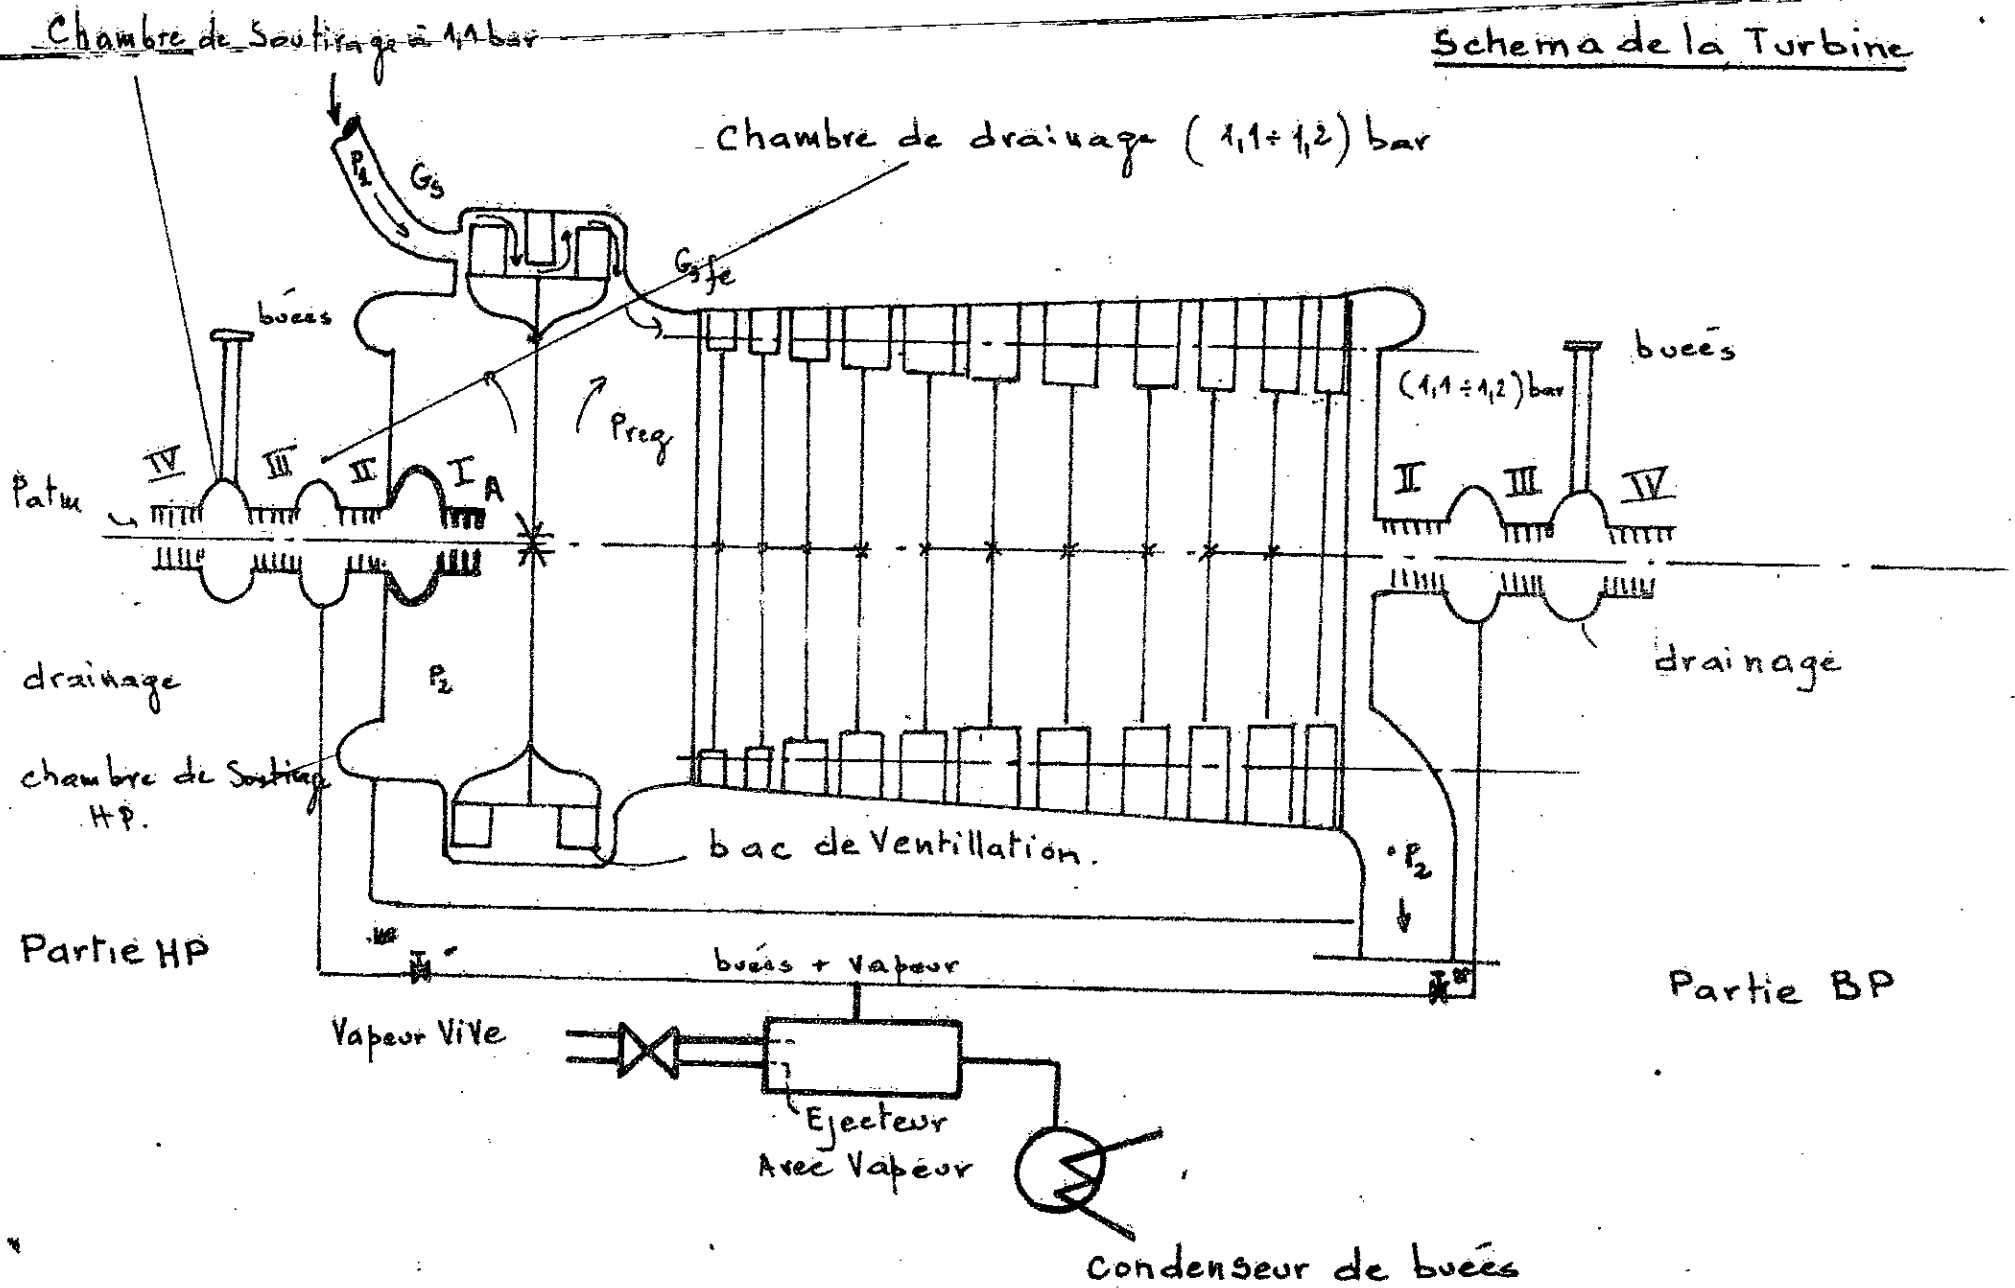 Chambre de Soutirage à 1,1 bar
Schema de la Turbine
Chambre de drainage (1,1÷1,2) bar
P1
Gs
Gsfe
buées
bueés
(1,1÷1,2) bar
Preg
IV
III
II
I
A
Patm
II
III
IV
drainage
P2
drainage
chambre de Soutirage
HP.
bac de Ventillation.
P2
Partie HP
bueés + Vapeur
Partie BP
Vapeur ViVe
Ejecteur
Avec Vapeur
Condenseur de bueés